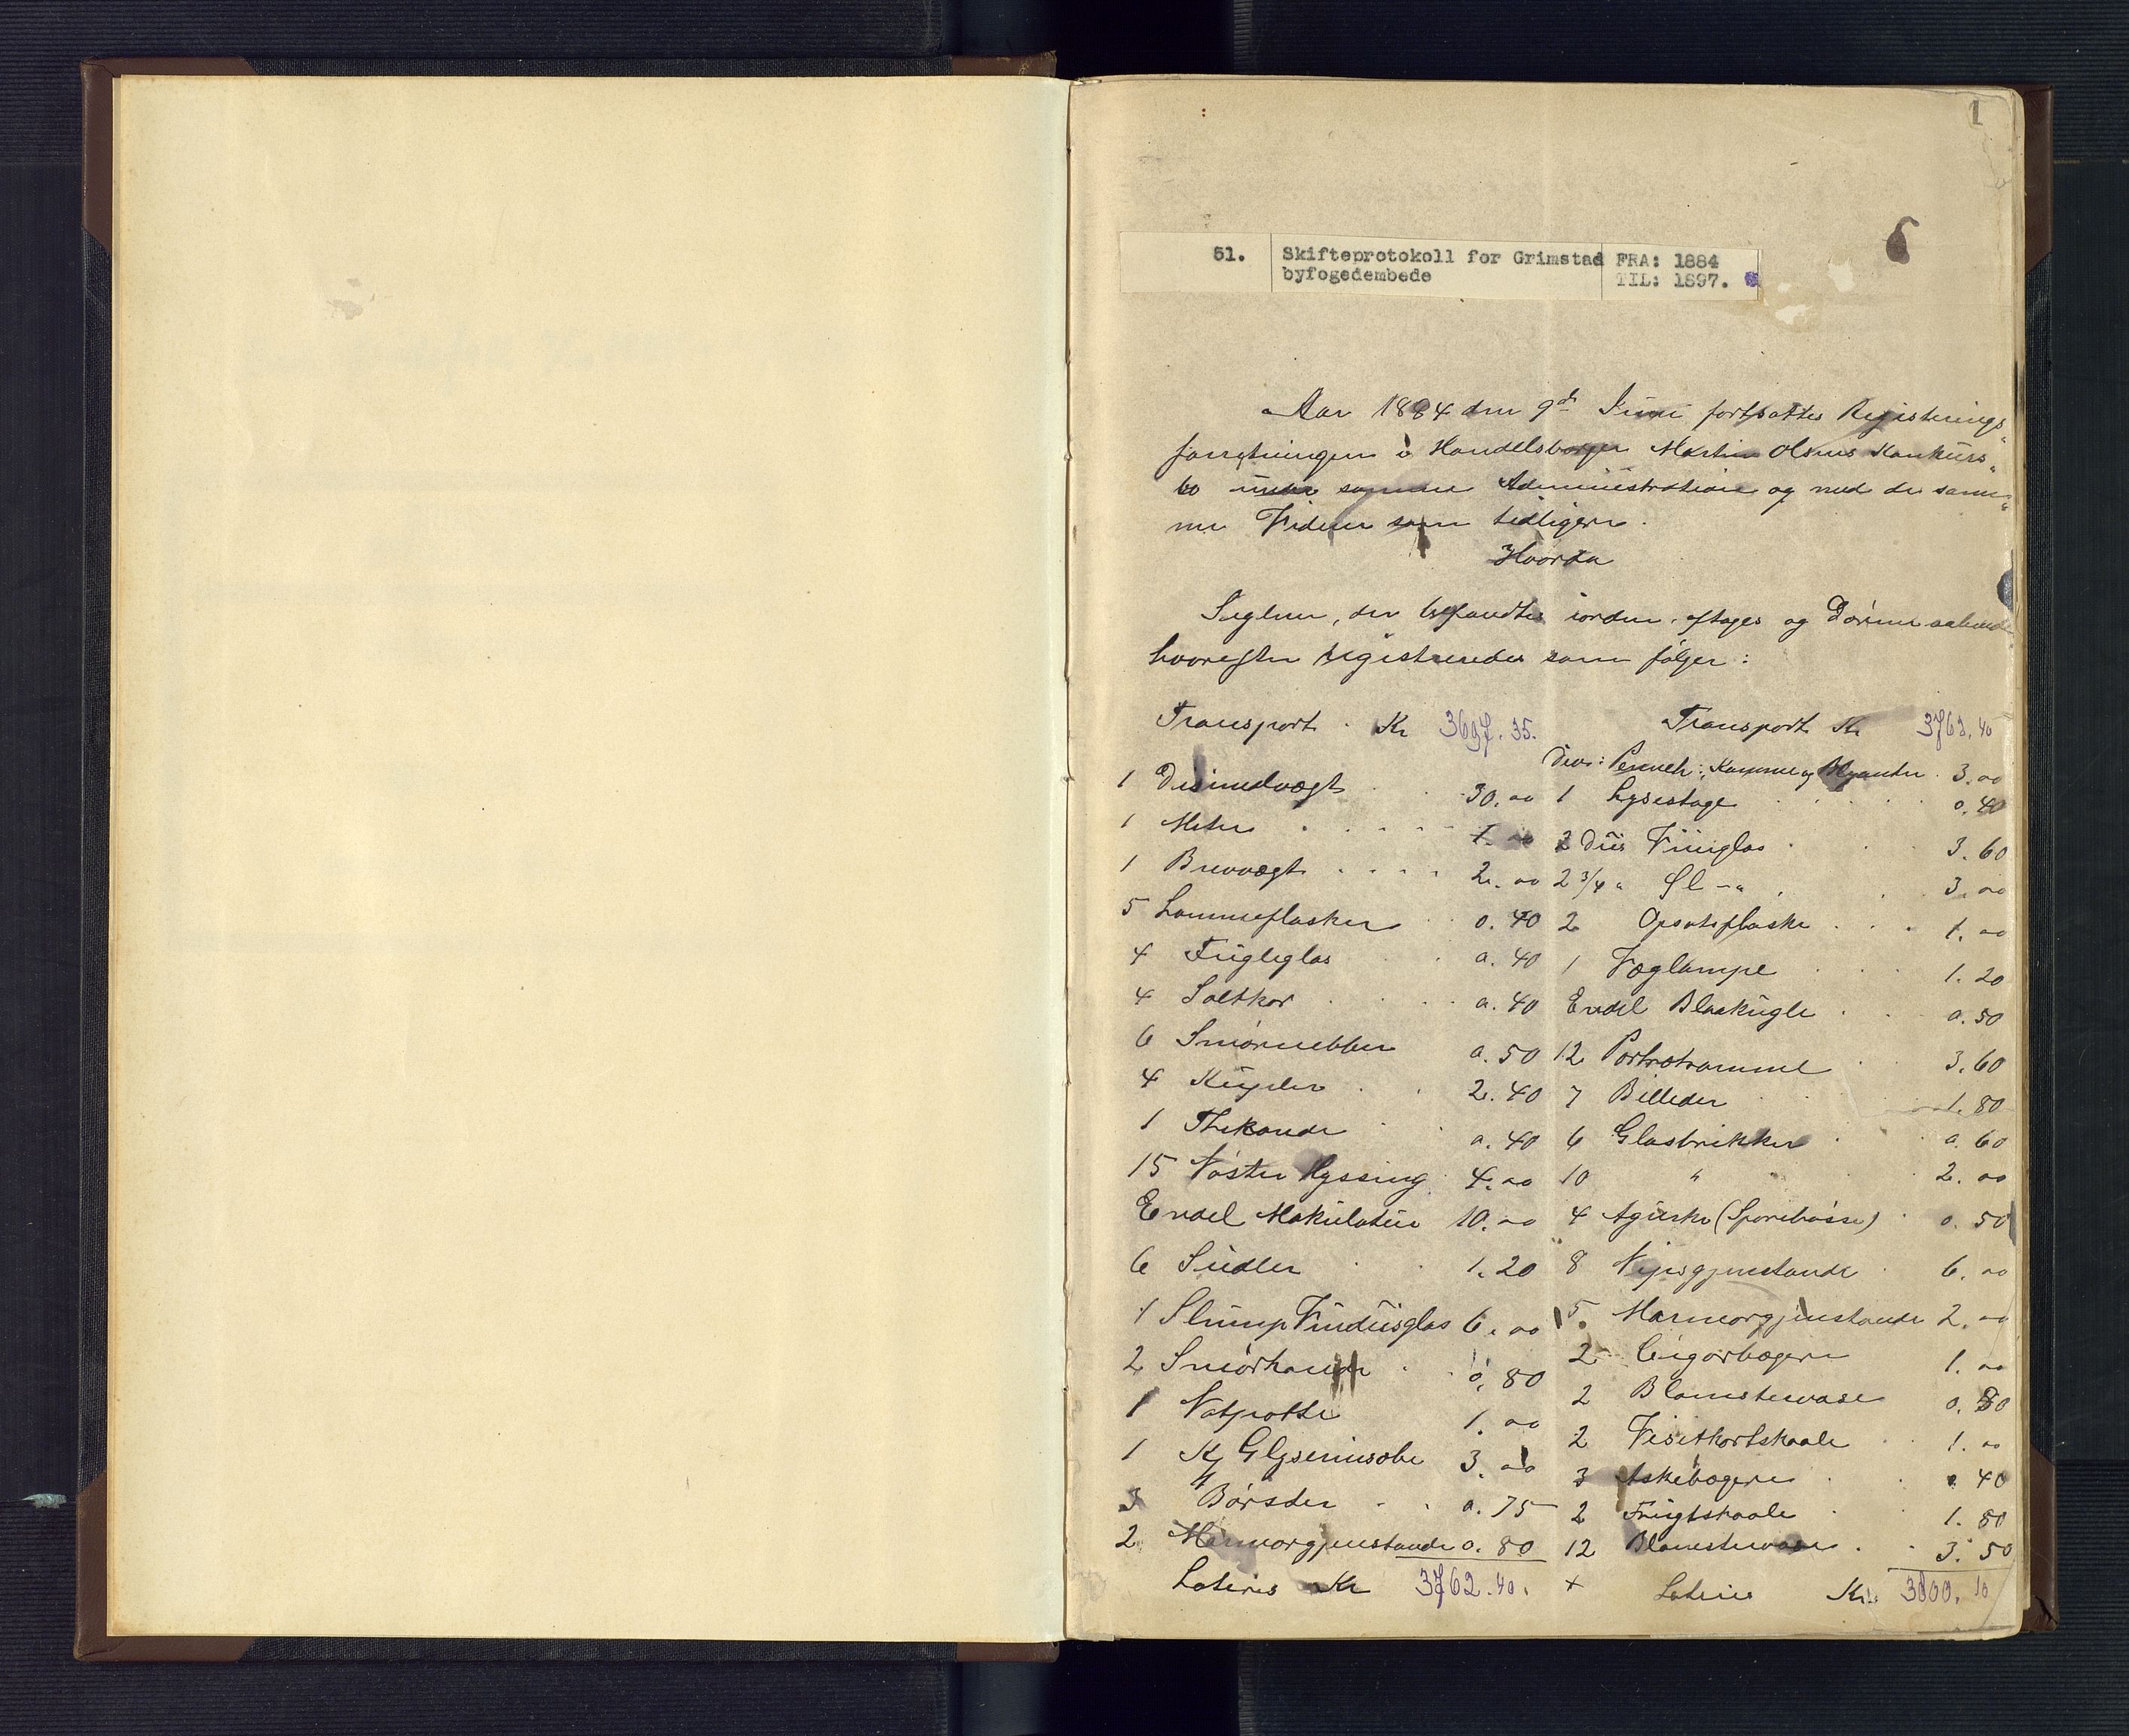 1
51. Skifteprotokoll for Grimstad FRA: 1884
byfogedembede TIL: 1897.
Aar 1884 den 9de Juni fortsattes Registrerings
forretningen i Handelsborger Martin Olsens Konkurs
bo under samme Administration og med de sam
me Vidner som tidligere.
Hvorda
Seglene, der befandtes iorden, aftoges og Dørene aabnedes
hvorefter registreredes som følger:
Transport. Kr 3697.35.
1 Desimalvægt 30.00
1 Meter 1.00
1 Brevvægt 2.00
5 Lommeflasker 0.40
4 Fugleglas 0.40
4 Saltkar 0.40
6 Smørnebber 0.50
4 Kupler 2.40
1 Thekande 0.40
15 Nøster Hyssing 4.00
Endel Makulatur 10.00
6 Sudler 1.20
1 Slump Vindusglas 6.00
2 Smørkander 0.80
1 Natpotte 1.00
1 Kg Glyserinsæbe 3.00
3 Børster 0.75
2 Marmorgjenstande 0.80
Lateris Kr 3762.40.
Transport Kr 3762.40
Div: Penneh:, Kamme og Blyanter 3.00
1 Lysestage 0.40
2 Dus Vinglas 3.60
2 3/4 " Øl -" 3.00
2 Opsatsflaske 1.00
1 Væglampe 1.20
Endel Blaakugle 0.50
12 Portrætramme 3.60
7 Billeder 1.80
6 Glasbrikker 0.60
10 " 2.00
4 Agurke (Sparebøsse) 0.50
8 Nipsgjenstande 6.00
5 Marmorgjenstande 2.00
2 Cigarbægere 1.00
2 Blomstervase 0.80
2 Visitkortskaale 1.00
3 Askebægere 0.40
2 Frugtskaale 1.80
12 Blomstervaser 3.50
+ Lateris Kr. 3800.10